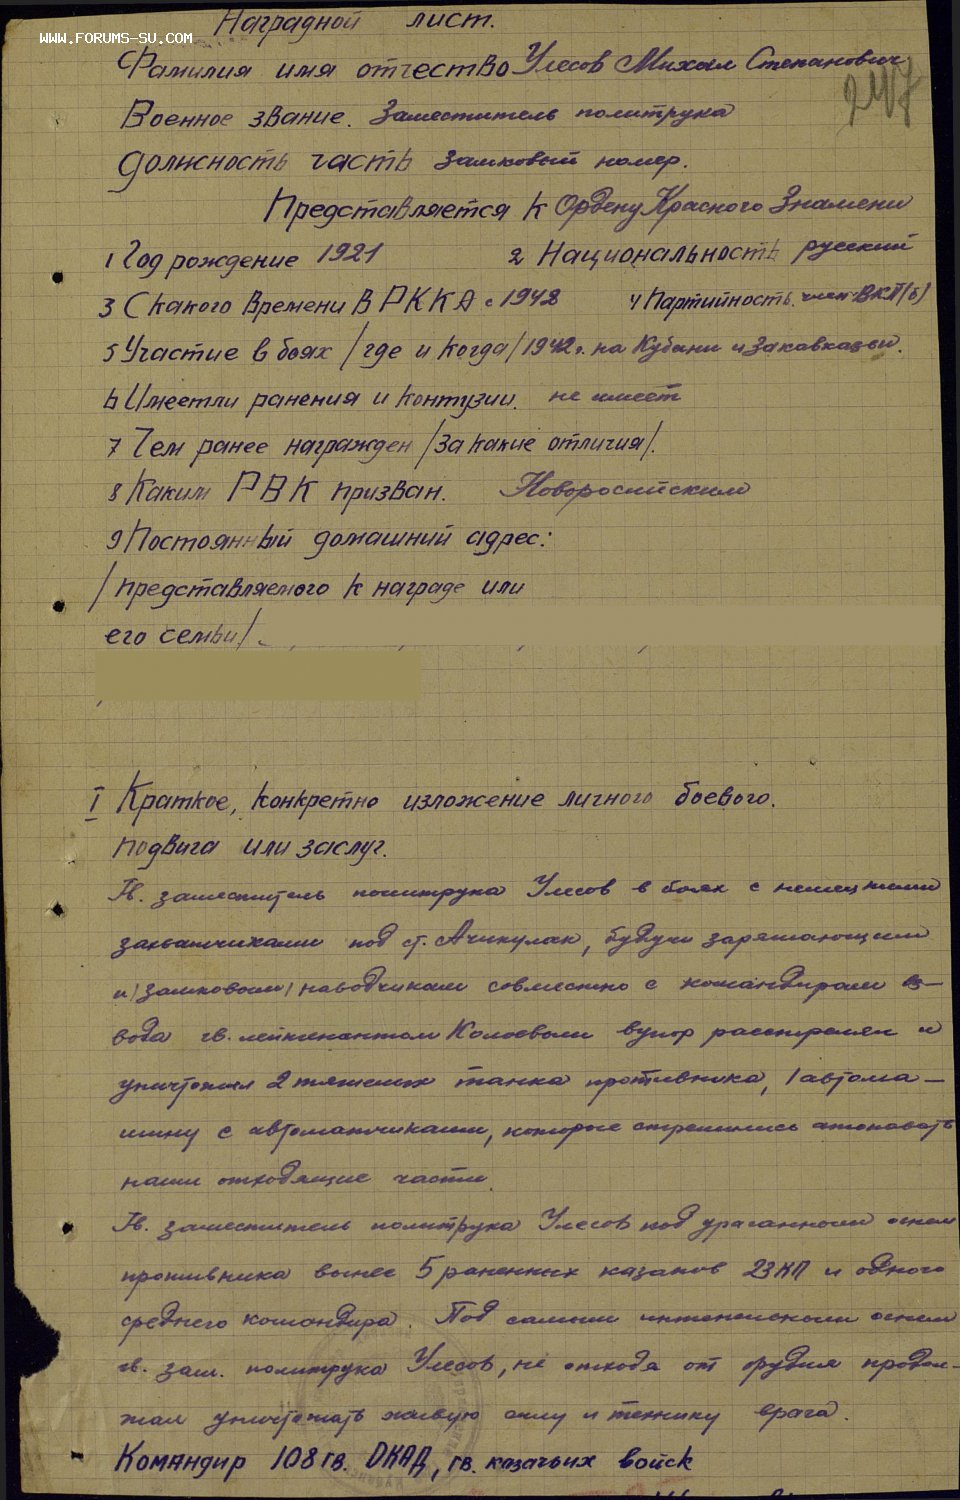 Наградной лист.
WWW.FORUMS-SU.COM
Фамилия имя отчество Улесов Михаил Степанович
247
Военное звание. Заместитель политрука
Должность часть замковый номер.
Представляется к Ордену Красного Знамени
1 Год рождение 1921 2 Национальность русский
3 С какого времени в РККА с 1942 4 Партийность. член ВКП(б)
5 Участие в боях /где и когда/ 1942 г. на Кубани и Закавказьи.
6 Имеетли ранения и контузии. не имеет
7 Чем ранее награжден /за какие отличия/.
8 Каким РВК призван. Новоросийским
9 Постоянный домашний адрес:
/представляемого к награде или
его семьи/
I Краткое, конкретно изложение личного боевого.
подвига или заслуг.
Гв. заместитель политрука Улесов в боях с немецкими
захватчиками под ст. Ачикулак, будучи заряжающим
и /замковым/ наводчиком совместно с командиром вз-
вода гв. лейтенантом Колоевом в упор расстрелял и
уничтожил 2 тяжелых танка противника, 1 автома-
шину с автоматчиками, которые стремились атаковать
наши отходящие части.
Гв. заместитель политрука Улесов под ураганным огнем
противника вынес 5 раненных казаков 23 КП и одного
среднего командира. Под самым интенсивным огнем
гв. зам. политрука Улесов, не отходя от орудия продол-
жал уничтожать живую силу и технику врага.
Командир 108 гв. ОКАД, гв. казачьих войск